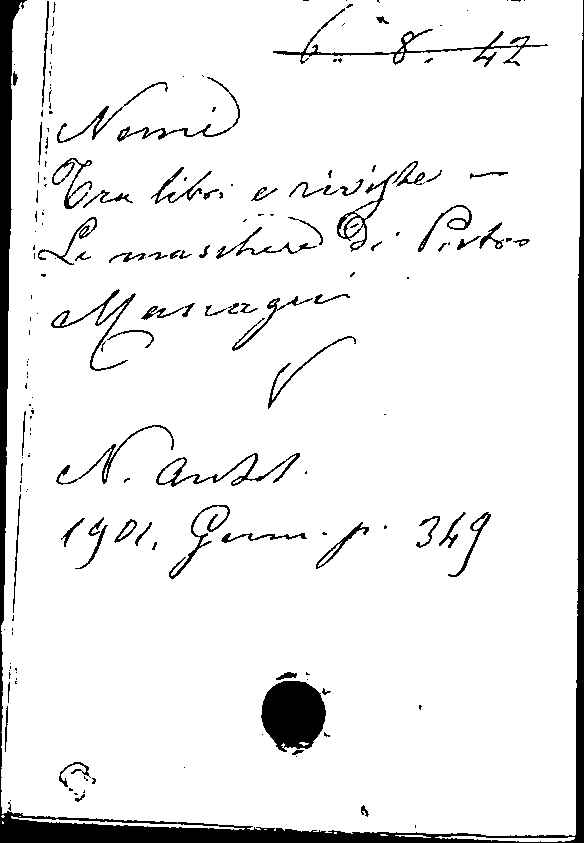 6. 8. 42
Nemi
Tra libri e riviste -
Le maschere di Pietro
Mascagni
V
N. Antol.
1901, Genn. p. 349